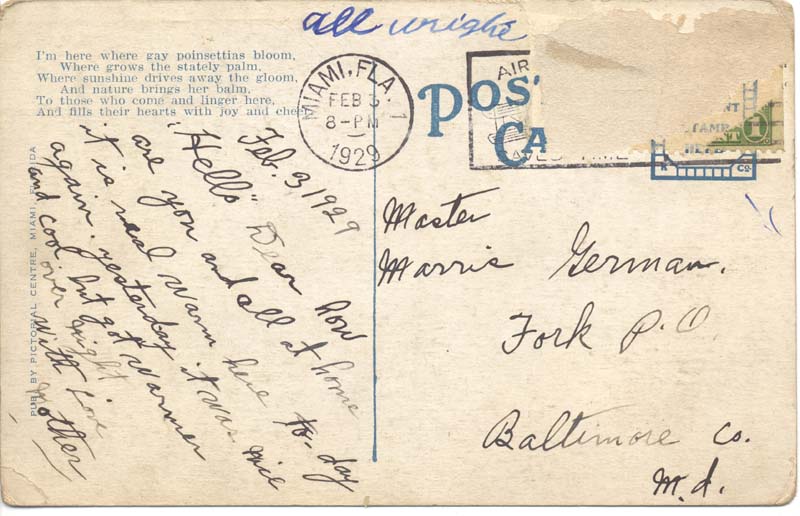 all wright
I'm here where gay poinsettias bloom,
Where grows the stately palm,
Where sunshine drives away the gloom,
And nature brings her balm,
To those who come and linger here,
And fills their hearts with joy and cheer
MIAMI, FLA. 1
FEB 3
8-PM
1929
AIR
POS
CA
TIME
1
Feb. 3, 1929
"Hello" Dear how
are you and all at home
it is real warm here to-day
again. yesterday it was nice
and cool, but got warmer
over night
with Love
Mother
PUB. BY PICTORIAL CENTRE, MIAMI, FLORIDA
Master
Marris German.
Fork P.O.
Baltimore Co.
M.d.